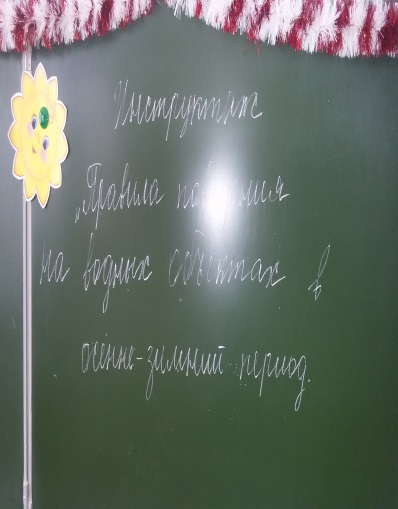 Инструктаж
„Правила поведения
на водных объектах в
осенне-зимний период.